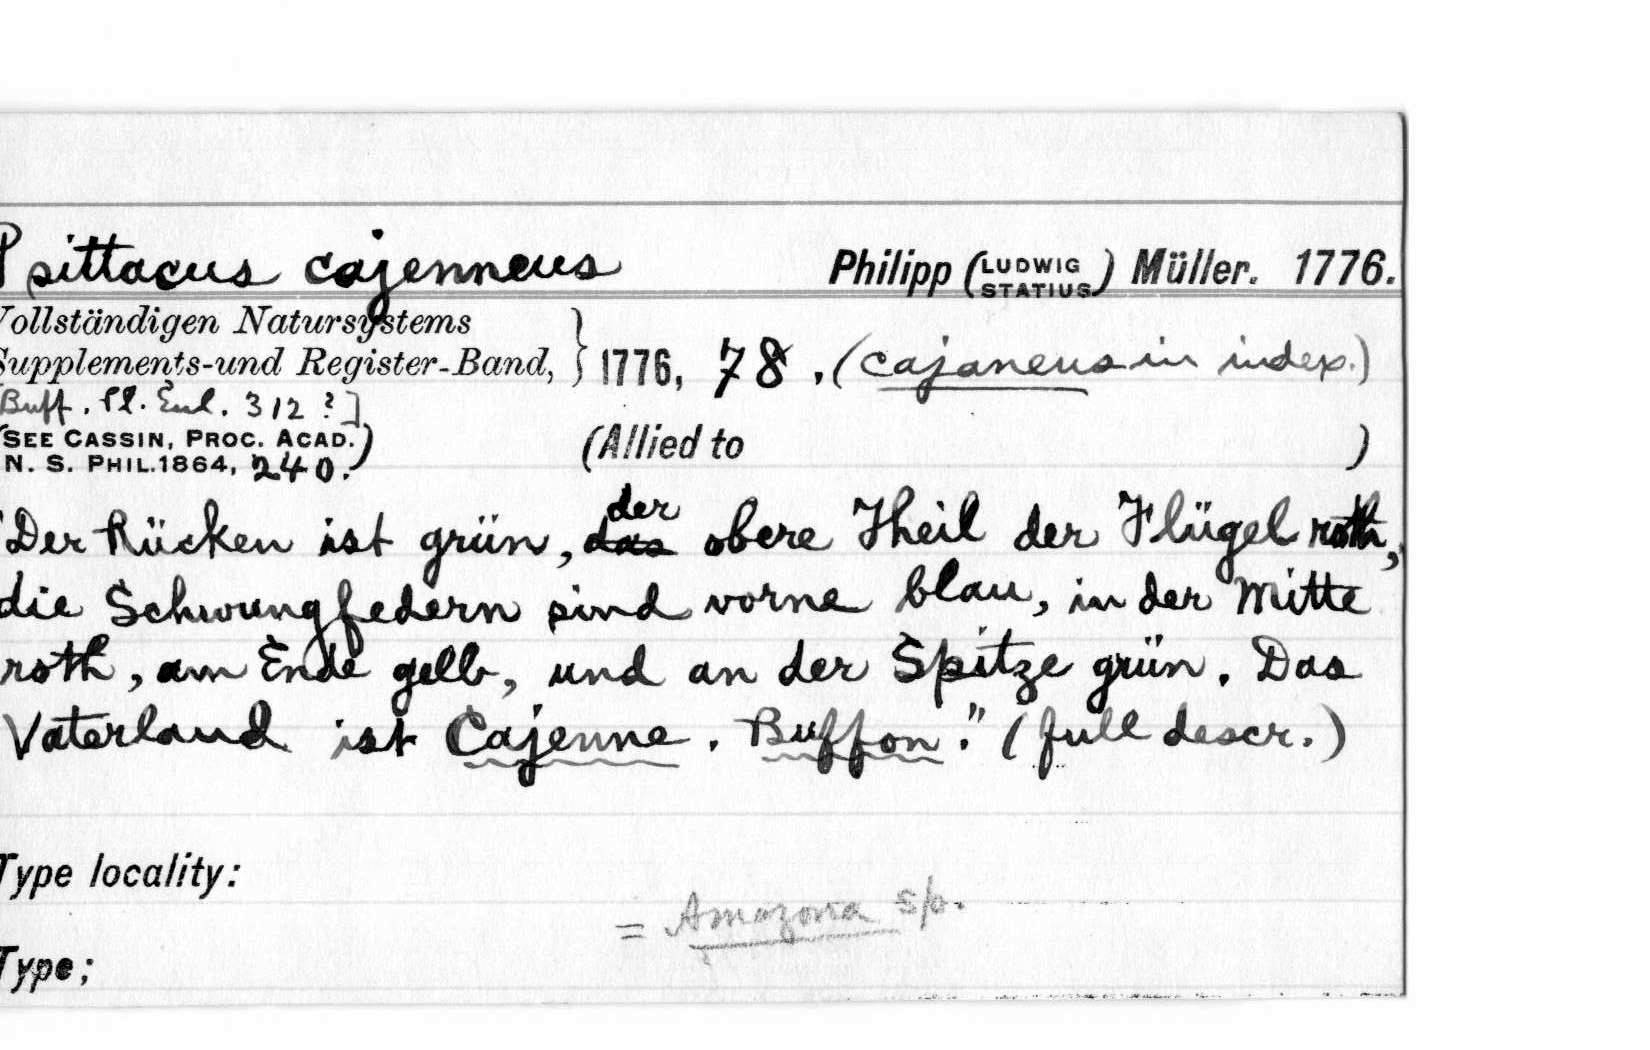 Psittacus cajenneus Philipp (LUDWIG STATIUS) Müller. 1776.
Vollständigen Natursystems
Supplements-und Register-Band, } 1776, 78. (cajaneus in index.)
[Buff. Pl. Enl. 312?]
(SEE CASSIN, PROC. ACAD.
N. S. PHIL. 1864, 240.) (Allied to )
"Der Rücken ist grün, das der obere Theil der Flügel roth,
die Schwungfedern sind vorne blau, in der Mitte
roth, am Ende gelb, und an der Spitze grün. Das
Vaterland ist Cajenne. Buffon." (full descr.)
Type locality:
= Amazona sp.
Type;